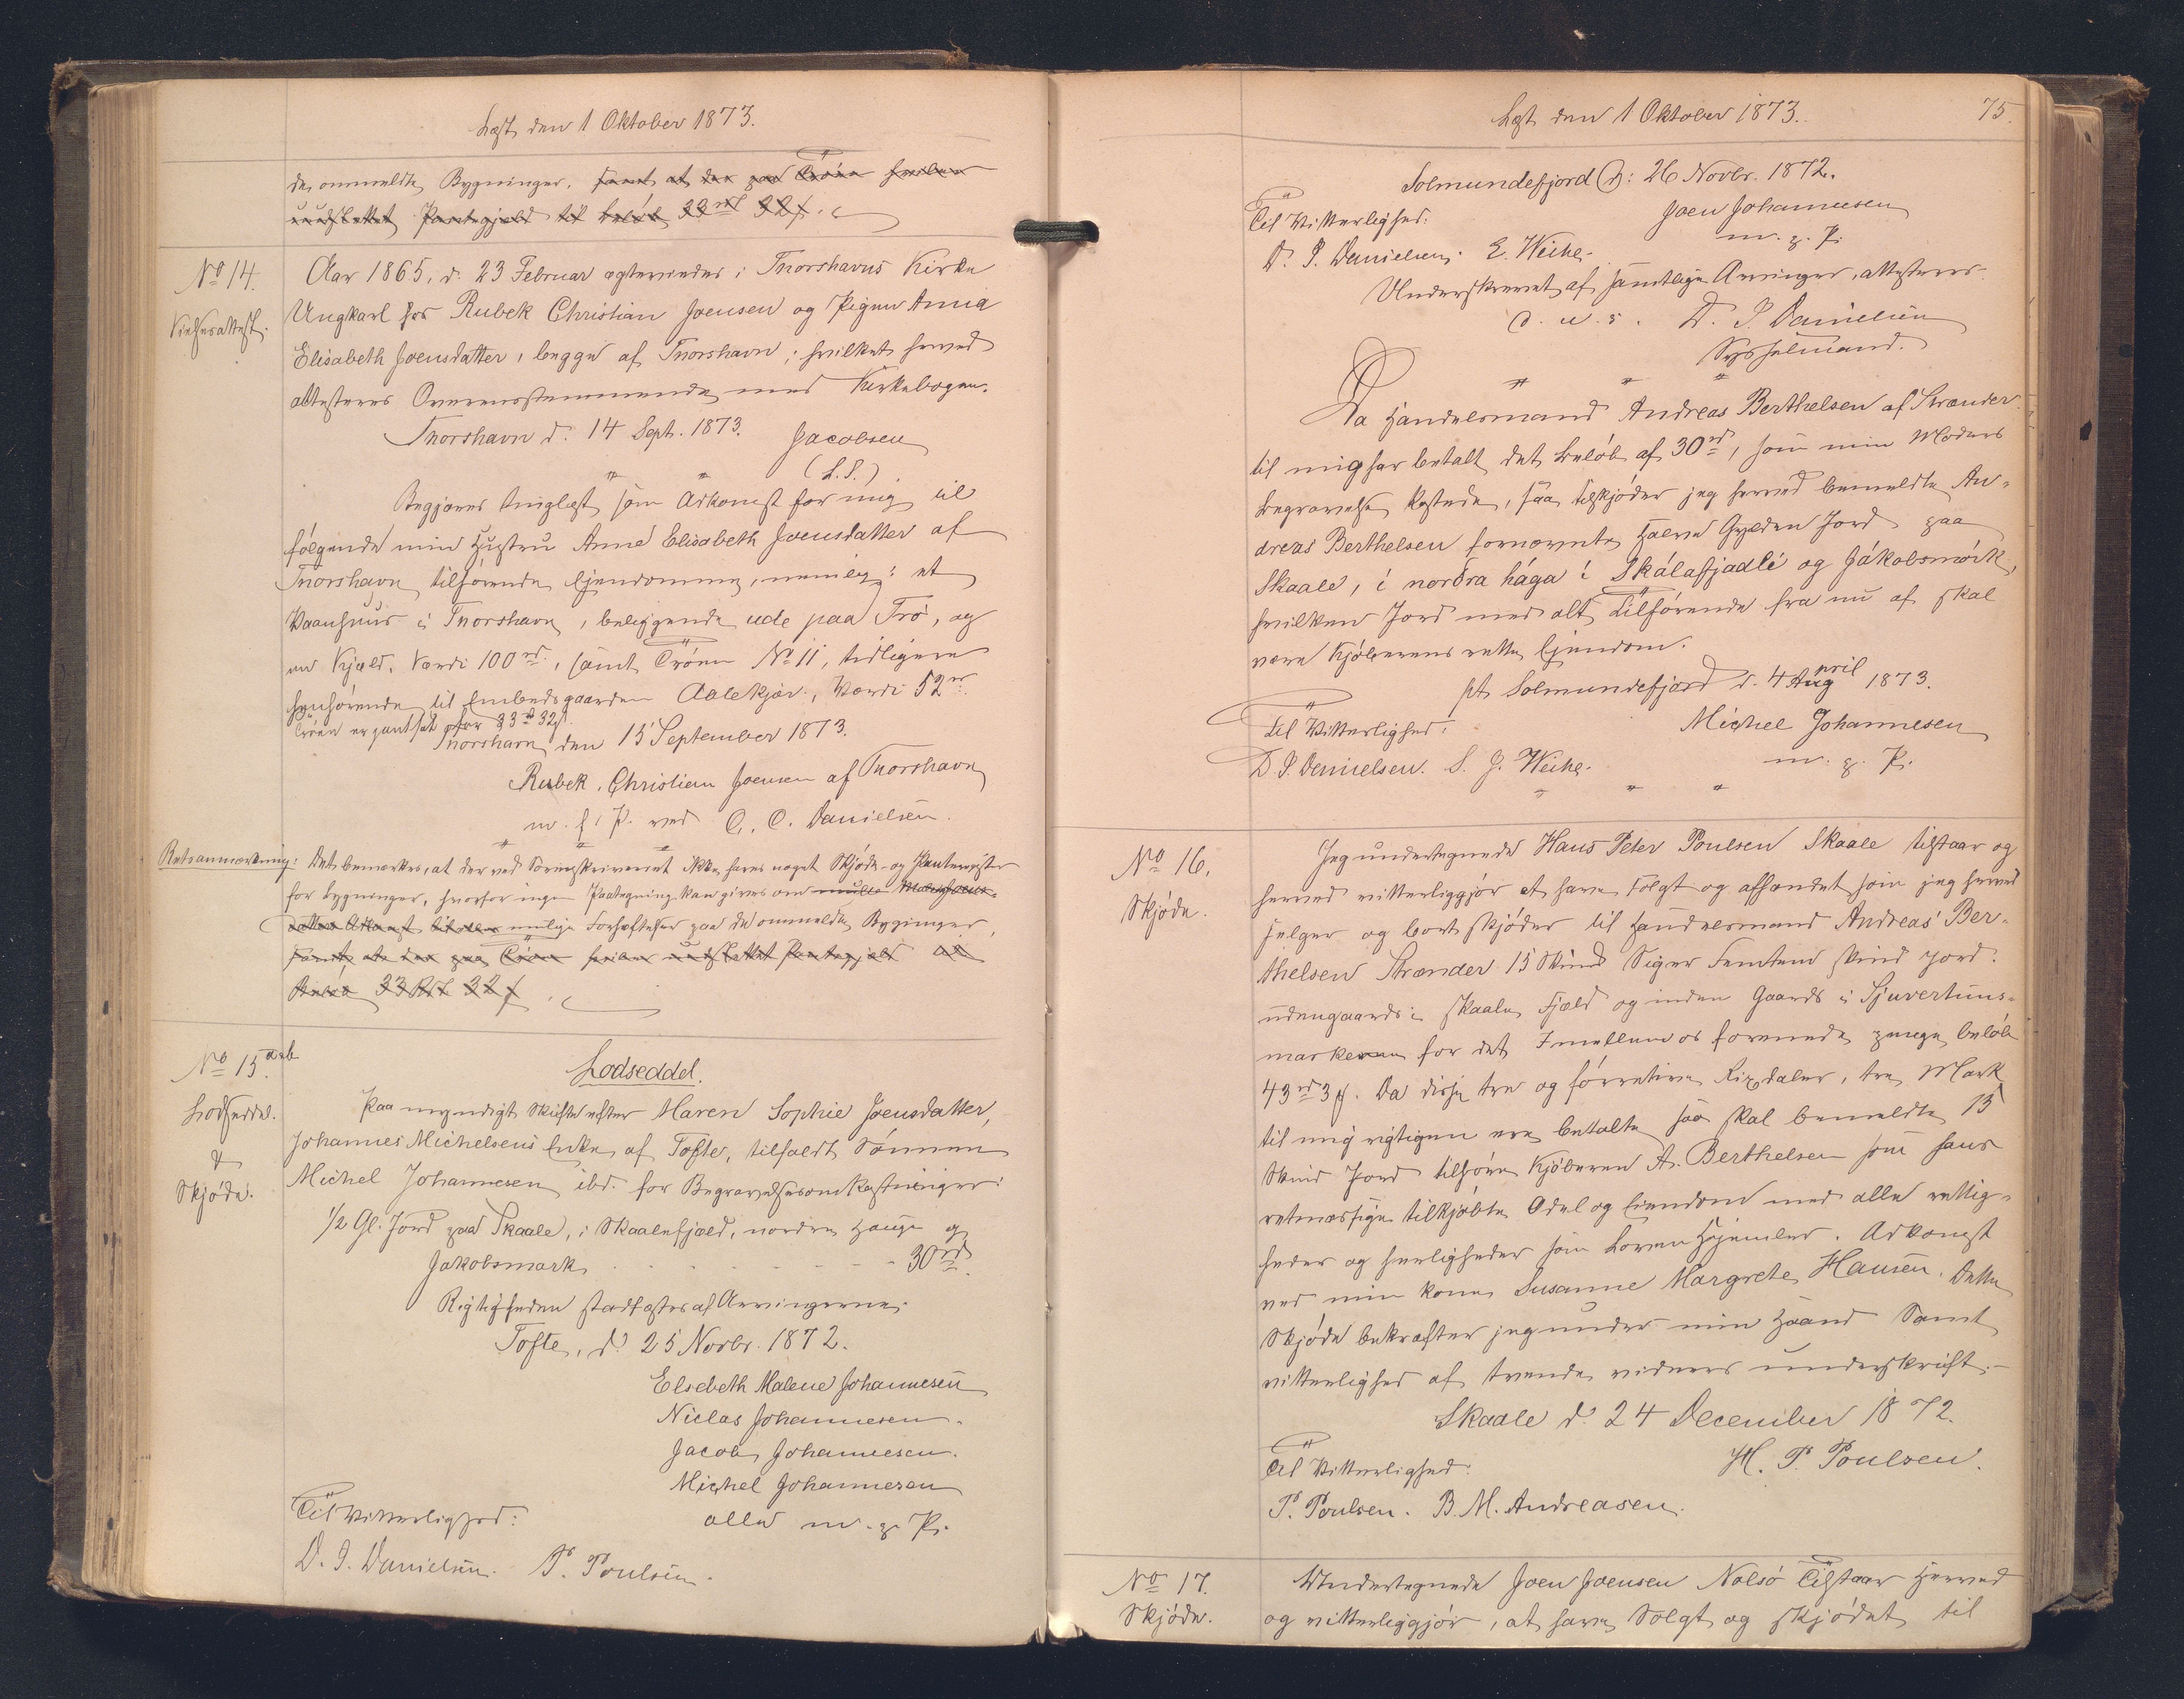 Læst den 1 Oktober 1873.
de ommeldte Bygninger, samt at der paa Tröen hviler
uudslettet Pantegjæld til Beløb 33 rd 32 ß.
No 14.
Vielsesattest.
Aar 1865, d. 23 Februar ægteviedes i Thorshavns Kirke
Ungkarl Rubek Christian Joensen og Pigen Anna
Elisabeth Joensdatter, begge af Thorshavn; hvilket herved
attesteres Overensstemmende med Kirkebogen.
Thorshavn d. 14 Sept. 1873. Jacobsen
(L.S.)
Begjæres tinglæst som Adkomst for mig til
følgende min Hustru Anne Elisabeth Joensdatter af
Thorshavn tilhørende Ejendomme, nemlig: et
Vaanhuus i Thorshavn, beliggende ude paa Trö, og
en Kjæld. Værdi 100 rd., samt Tröen No 11, tidligere
henhörende til Embedsgaarden Aalekjær, Værdi 52 rd.
Tröen er pantsat for 33 rd 32 ß.
Thorshavn, den 15 September 1873.
Rubek Christian Joensen af Thorshavn
m. f. P. ved C. C. Danielsen.
Retsanmærkning: Det bemærkes, at der ved Sorenskriveriet ikke haves noget Skjöde- og Panteregister
for Bygninger, hvorfor ingen Paategning kan gives om
mulige Forhæftelser paa de ommeldte Bygninger,
samt at der paa Tröen hviler uudslettet Pantegjæld
Beløb 33 Rd 32 ß.
No 15 a & b
Lodseddel
&
Skjöde.
Lodseddel.
Paa myndigt Skifte efter Maren Sophie Joensdatter,
Johannes Michelsens Enke af Tofte, tilfaldt Sönnen
Michel Johannesen ibd. for Begravelsesomkostninger:
1/2 Gl. Jord paa Skaale, i Skaalefjæld, nordre Hauge og
Jakobsmark - - - - - - 30 rd.
Rigtigheden stadfæstes af Arvingerne.
Tofte, d. 25 Novbr. 1872.
Elsebeth Malene Johannesen
Niclas Johannesen.
Jacob Johannesen.
Michel Johannesen
alle m. p. P.
Til Vitterlighed:
D. J. Danielsen. P. Poulsen.
Læst den 1 Oktober 1873. 75.
Solmundefjord d: 26 Novbr. 1872.
Joen Johannesen
m. p. P.
Til Vitterlighed:
D. J. Danielsen. E. Weihe.
Underskrevet af samtlige Arvinger, attesteres
D. u. s. D. J. Danielsen
Sysselmand.
Da Handelsmand Andreas Berthelsen af Strænder
til mig har betalt det Belöb af 30 rd, som min Moders
Begravelse kostede, saa tilskjöder jeg herved bemeldte An-
dreas Berthelsen fornævnte halve Gylden Jord paa
Skaale, i norðra hága i Skálafjadli og Jákobsmörk,
hvilken Jord med alt Tilhörende fra nu af skal
være Kjöberens rette Ejendom.
pt. Solmundefjord d. 4 April 1873.
Michel Johannesen
m. p. P.
Til Vitterlighed:
D J. Danielsen. S. J. Weihe.
No 16.
Skjöde.
Jeg undertegnede Hans Peter Poulsen Skaale tilstaar og
herved vitterliggjör at have Solgt og afhændet som jeg herved
sælger og bortskjöder til Handelsmand Andreas Ber-
thelsen Strænder 15 Skind Siger Femten Skind Jord.
udengaards i Skaale Fjæld og inden Gaards i Sjuvertuns-
marken for det Imellem os forenede penge belöb
43 rd 3 ß. Da disse tre og förretive Rixdaler, tre Mark
til mig rigtigen ere betalte saa skal bemeldte 15
Skind Jord tilhöre Kjöberen A. Berthelsen som hans
retmæssige tilkjöbte Odel og Eiendom med alle rettig-
heder og herligheder som Loven Hjemler. Adkomst
ved min kone Susanne Margrete Hansen. Dette
Skjöde bekræfter jeg under min Haand Samt
vitterlighed af tvende vidners underskrift.
Skaale d. 24 December 1872.
H. P. Poulsen.
Til Vitterlighed:
P. Poulsen. B. M. Andreasen.
No 17.
Skjöde.
Undertegnede Joen Joensen Nolsö Tilstaar Herved
og vitterliggjör, at have Solgt og skjödet til